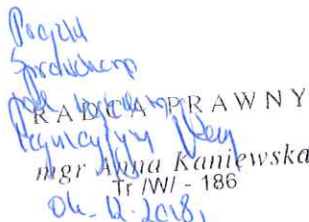 Projekt
Sprawdzono
pod względem
RADCA PRAWNY
mgr Anna Kaniewska
Tr /W/ - 186
04-12-2018,